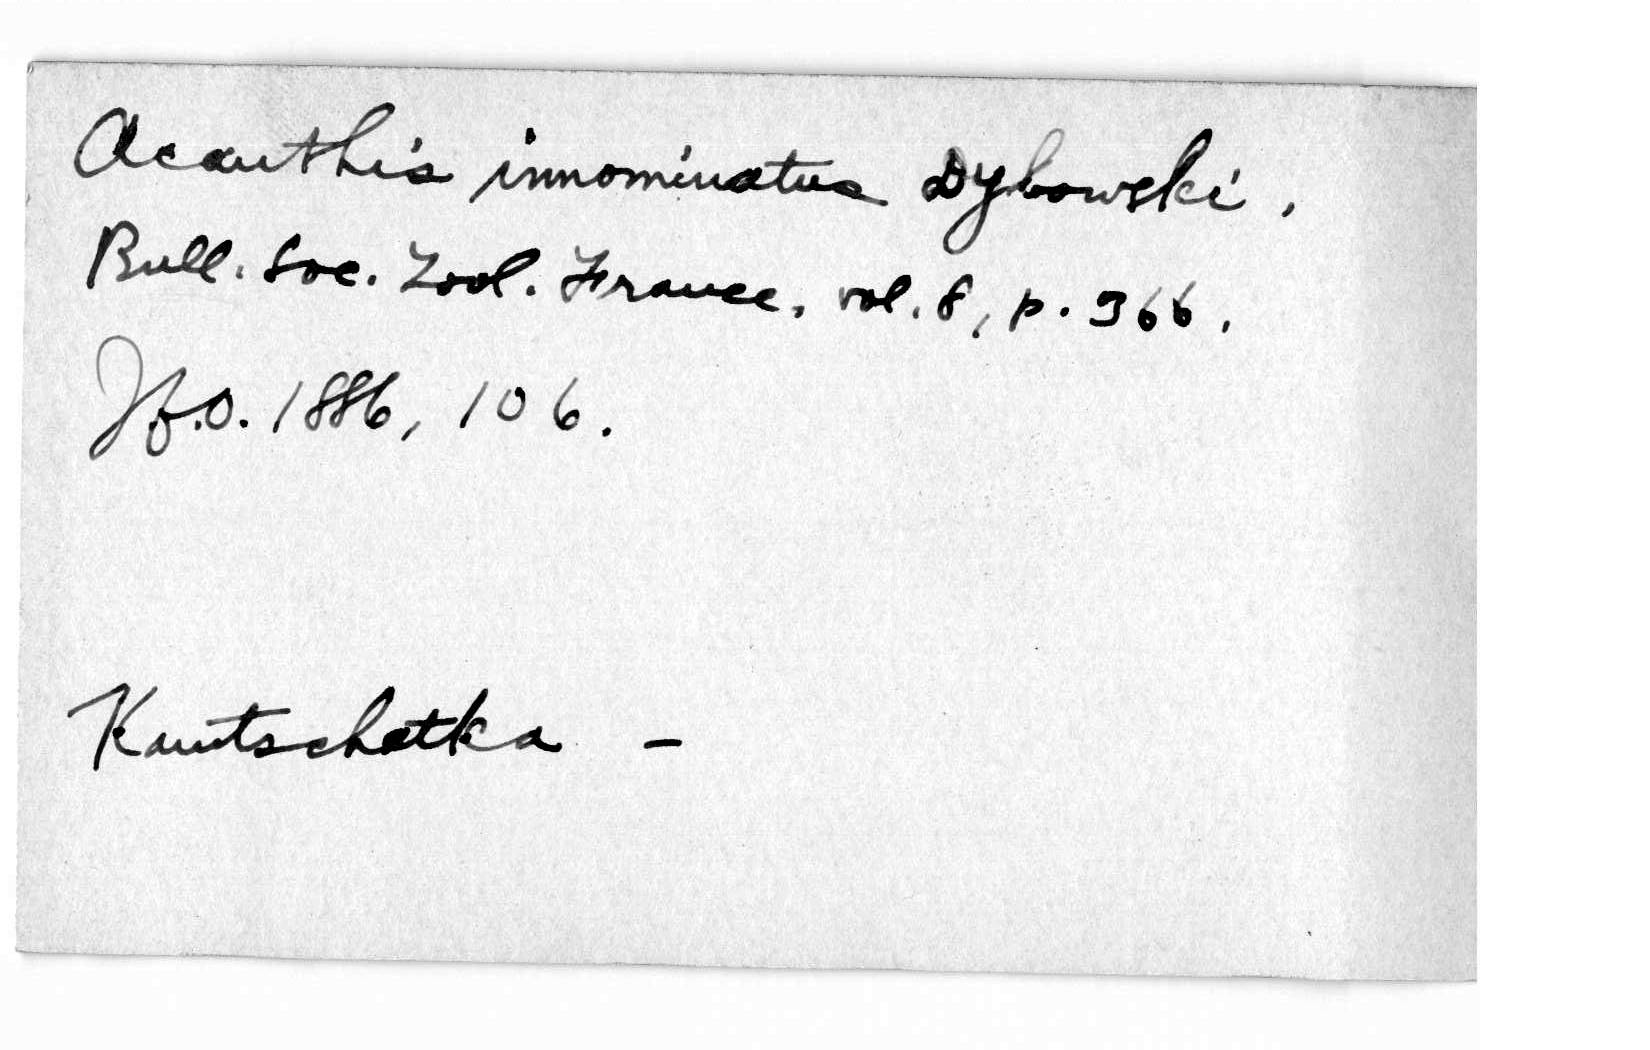 Acanthis innominatus Dybowski,
Bull. Soc. Zool. France, vol. 8, p. 366.
J.f.O. 1886, 106.
Kamtschatka –